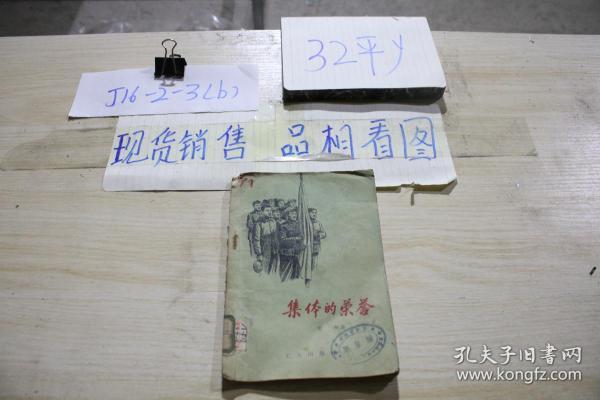 32平y
J16-2-3(b)
现货销售 品相看图
集体的荣誉
孔夫子旧书网
www.kongfz.com